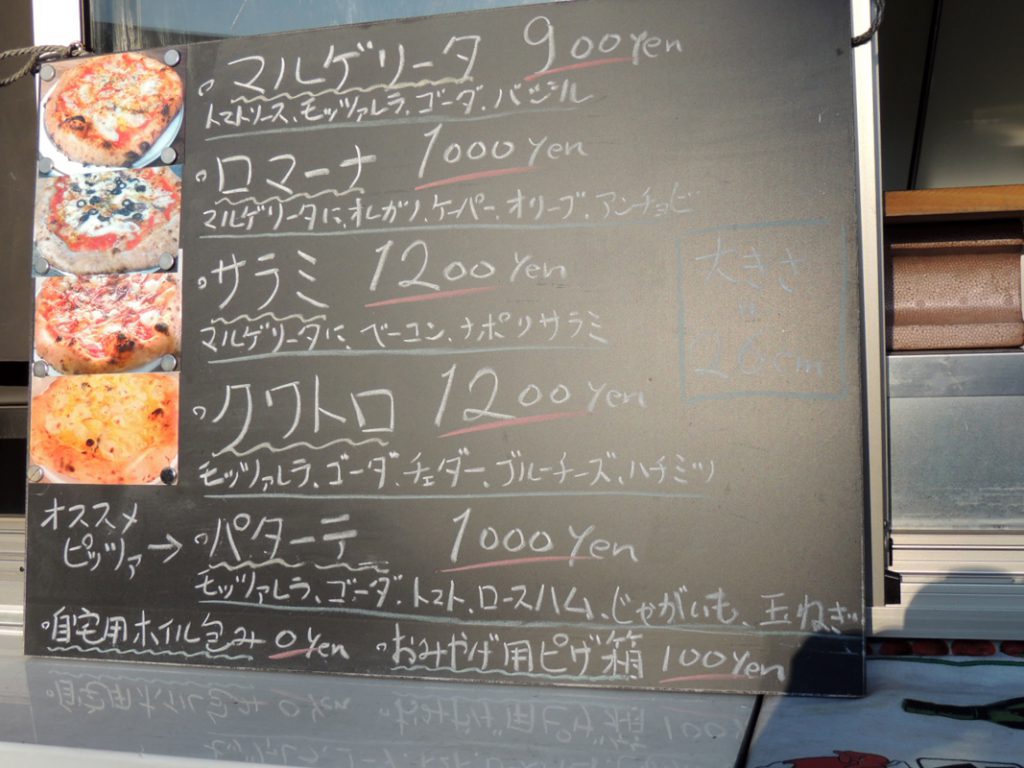 マルゲリータ 900yen
トマトソース、モッツァレラ、ゴーダ、バジル
ロマーナ 1000yen
マルゲリータに、オレガノ、ケーパー、オリーブ、アンチョビ
サラミ 1200yen
マルゲリータに、ベーコン、ナポリサラミ
大きさ
26cm
クワトロ 1200yen
モッツァレラ、ゴーダ、チェダー、ブルーチーズ、ハチミツ
オススメ
ピッツァ→
パターテ 1000yen
モッツァレラ、ゴーダ、トマト、ロースハム、じゃがいも、玉ねぎ
自宅用ホイル包み 0yen おみやげ用ピザ箱 100yen